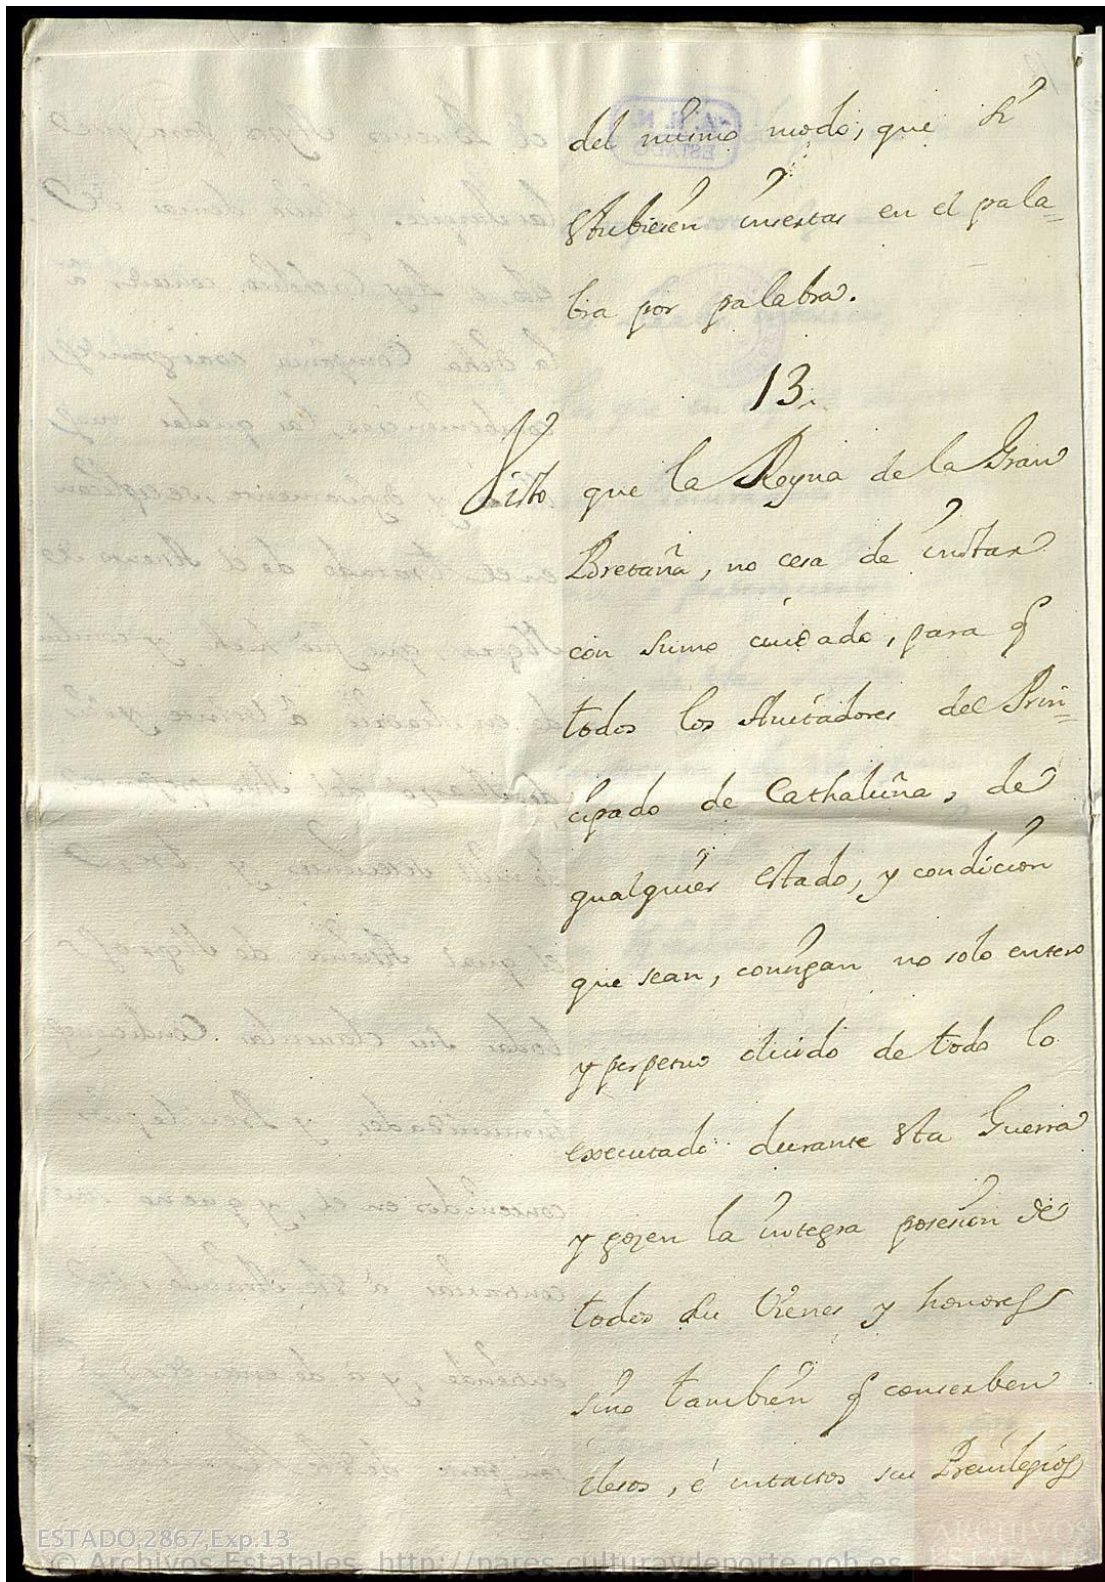 del mismo modo, que si
stubiesen insertas en el pala=
bra por palabra.
13.
Visto que la Reyna de la Gran
Bretaña, no cesa de instar
con sumo cuidado, para q
todos los Avitadores del Prin=
cipado de Cathaluña, de
qualquier estado, y condicion
que sean, consigan no solo entero
y perpetuo oluido de todo lo
executado durante sta Guerra
y gozen la integra posesion de
todos su vienes y honores
sino tambien q conserben
ilesos, é intactos su Preuilegios
ESTADO,2867,Exp.13
© Archivos Estatales, http://pares.culturaydeporte.gob.es